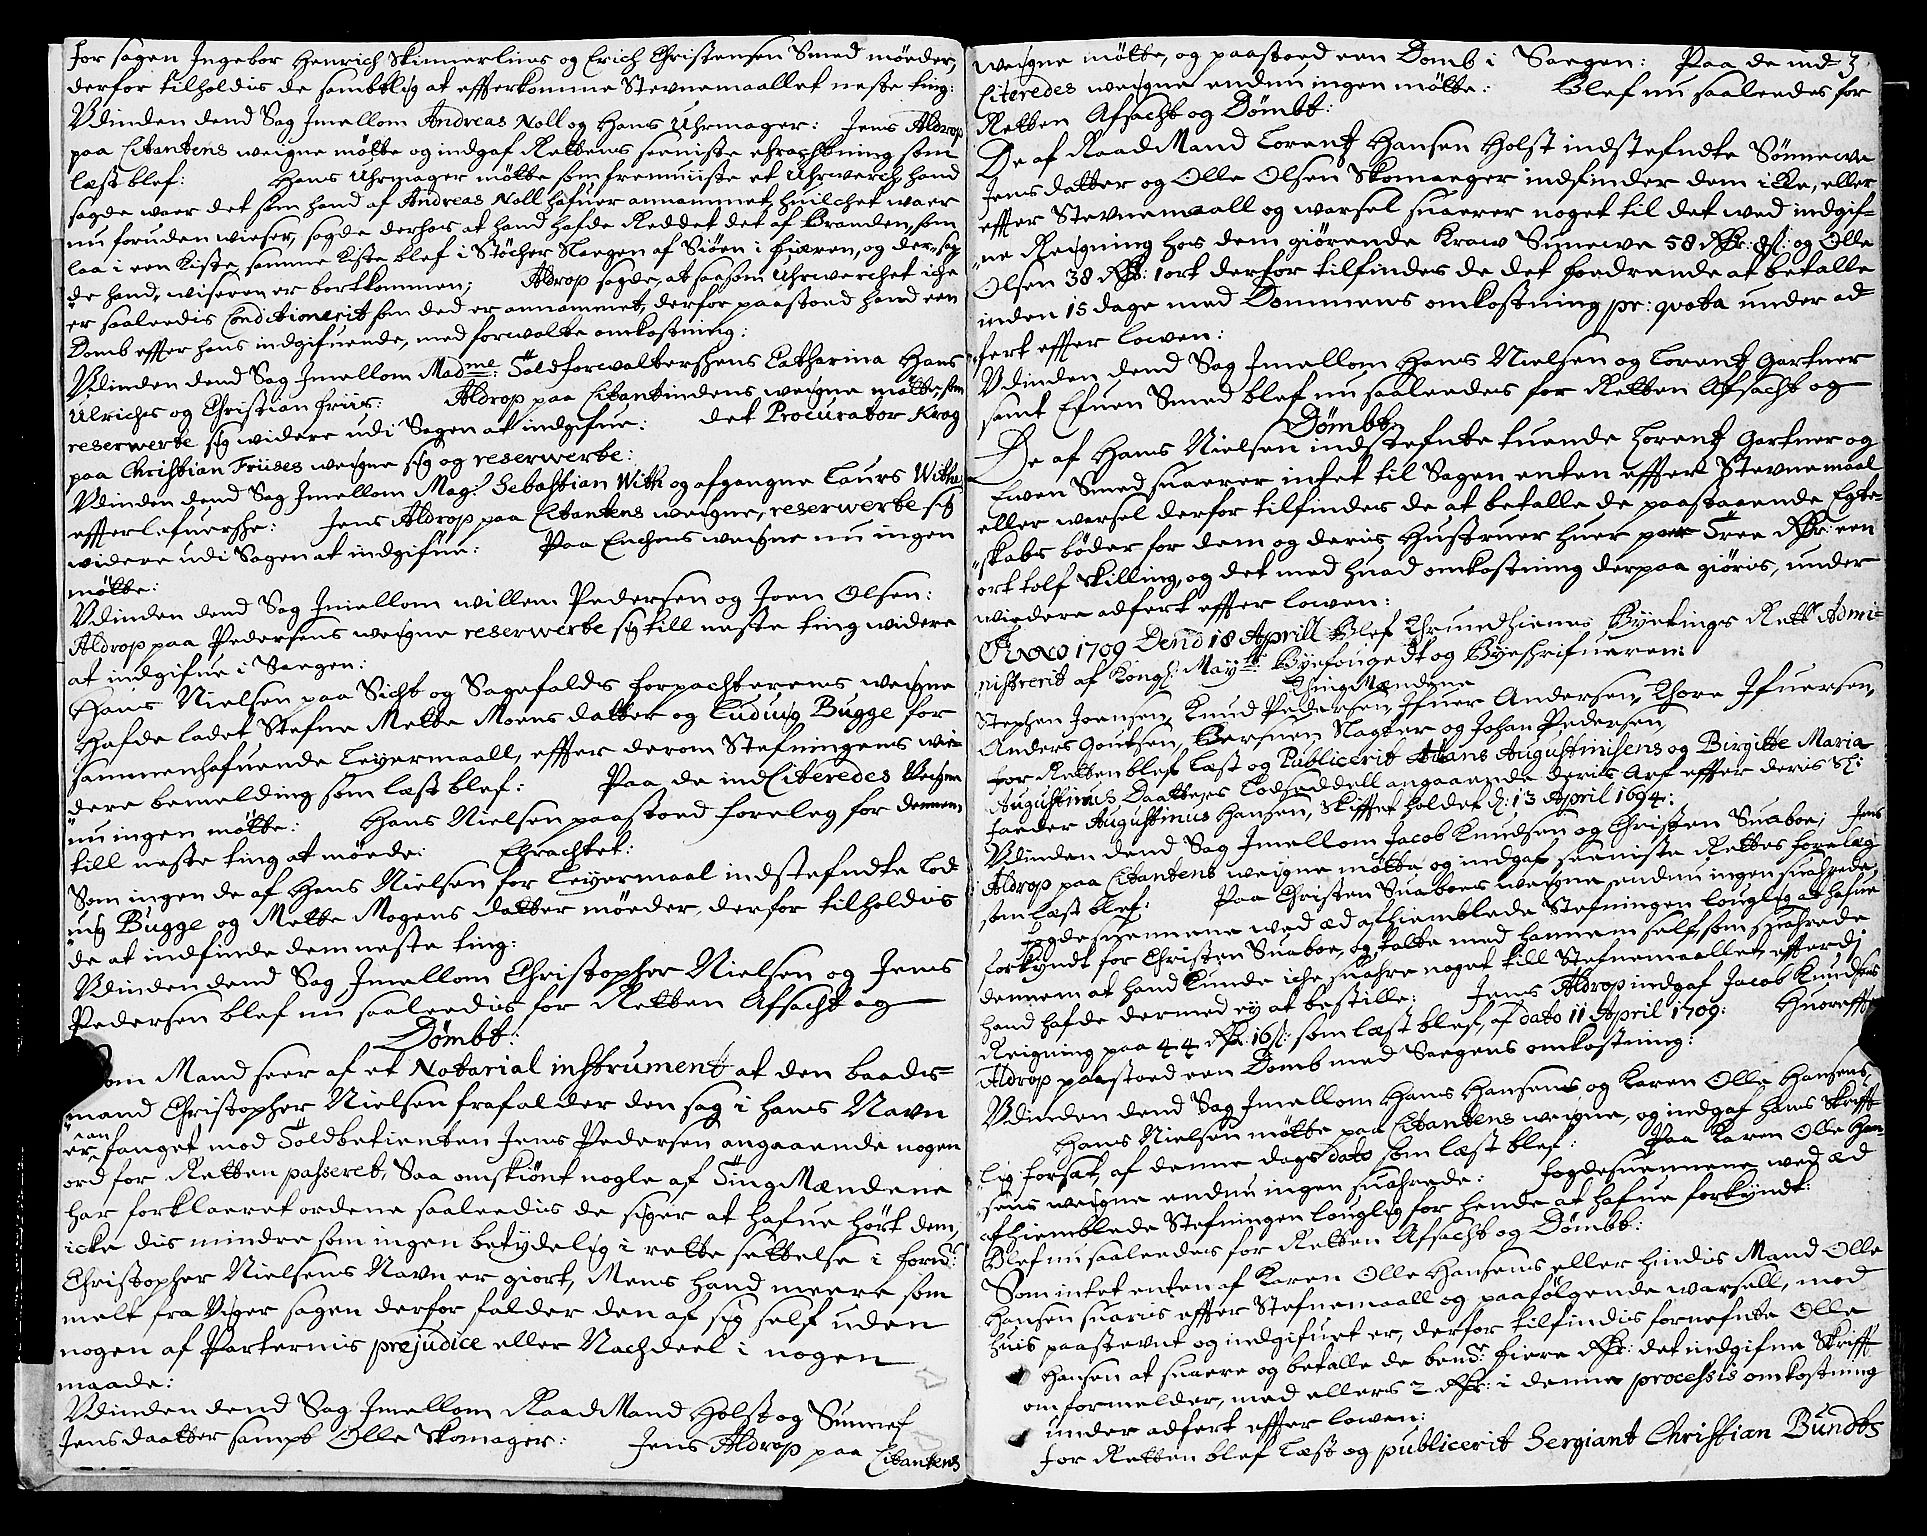 for sagen Ingebor Henrich Skinnerlines og Erich Christensen Smed möeder,
derfor tilholdis de sambtlig at efterkomme Stevnemaallet neste ting:
Udinden dend Sag Imellom Andreas Noll og Hans Uhrmager: Jens Aldrop
paa Citantens weigne mötte og indgaf Rettens seeniste ehrachtning som
læst blef: Hans Uhrmager mötte som fremuiiste et Uhrwerch hand
sagde waer det som hand af Andreas Noll hafuer annammet, huilchet waer
nu foruden wiser, sagde derhos at hand hafde Reddet det af Branden, som
laa i een Kiste, samme Kiste blef i Stöcher Slaegen af Siöen i fiæren, og der, sag-
de hand, wiseren er bortkommen; Aldrop sagde, at saasom Uhrwerchet iche
er saaleedis Conditionerit som ded er annammet, derfor paastoed hand een
Domb efter hans indgifuende, med forwolte omkostning:
Udinden dend Sag Imellom Madme: Toldforwalterschens Catharina Hans
Ulriches og Christian friis: Aldrop paa Citantindens weigne mötte, som
reserwerte sig widere udi Sagen at indgifue: det Procurator Krog
paa Christian Friises weigne sig og reserwerte:
Udinden dend Sag Imellom Mag: Sebastian With og afgangne Laurs Withs
efterlefuersche: Jens Aldrop paa Citantens weigne, reserwerte sig
widere udi Sagen at indgifue: Paa Enchens weigne nu ingen
mötte:
Udinden dend Sag Imellom willem Pedersen og Joen Olsen:
Aldrop paa Pedersens weigne reserwerte sig till neste ting widere
at indgifue i Saegen:
Hans Nielsen paa Sicht og Sagefalds forpachterens weigne
Hafde ladet Stefne Mette Moens datter og Ludwig Bugge for
sammenhafuende Leyermaall, efter derom Stefningens wie-
dere bemelding som læst blef: Paa de ind Citeredes Weigne
nu ingen mötte: Hans Nielsen paastoed foreleg for dennem
till neste ting at möede: Ehrachtet:
Som ingen de af Hans Nielsen for Leyermaal indstefndte Lod-
uig Bugge og Mette Mogens datter möeder, derfor tilholdis
de at indfinde dem neste ting:
Udinden dend Sag Imellom Christopher Nielsen og Jens
Pedersen blef nu saaleedis for Retten Afsacht og
Dömbt:
Som Mand seer af et Notarial instrument at den baads-
mand Christopher Nielsen frafalder den sag i hans Navn
er anfanget mod Toldbetienten Jens Pedersen angaaende nogen
ord for Retten passeret, Saa omskiönt nogle af TingMændene
har forklaeret ordene saaleedis de siger at hafue hört dem,
icke dis mindre som ingen betydelig i rette settelse i forns:
Christopher Nielsens Navn er giort, Mens hand meere som
melt fra Viger sagen derfor falder den af sig self uden
nogen af Parternis prejudice eller Nachdeel i nogen
maade:
Udinden dend Sag Imellom RaadMand Holst og Sunnef
Jensdaatter sampt Olle Skomager: Jens Aldrop paa Citantens
weigne mötte, og paastoed een Domb i Saegen: Paa de ind- 3
Citeredes weigne endnu ingen mötte: Blef nu saaleedes for
Retten Afsacht og Dömbt:
De af RaadMand Lorentz Hansen Holst indstefndte Sönnewe
Jensdatter og Olle Olsen Skomaeger indfinder dem icke, eller
efter Stevnemaall og warsel suaerer noget til det wed indgif-
ne Reigning hos dem giörende Kraw Sunewe 58 Rdr: 8s: og Olle
Olsen 38 Rdr: 1 ort derfor tilfindes de det fordrende at betalle
inden 15 dage med Dommens omkostning pr: qvota under ad-
fert efter lowen:
Udinden dend Sag Imellom Hans Nielsen og Lorentz Gartner
samt Efuen Smed blef nu saaleedes for Retten Afsacht og
Dömbt,
De af Hans Nielsen indstefnte tuende Lorentz Gartner og
Ewen Smed suaerer intet til Sagen enten efter Stevnemaal
eller warsel derfor tilfindes de at betalle de paastaaende Egte-
skabs böder for dem og deris Hustruer huer par Tree Rdr: een
ort tolf skilling, og det med huad omkostning derpaa giöris, under
wiedere adfert efter lowen:
Anno 1709 Dend 18 Aprill Blef Thrundhiems Byetings Rett Admi-
nistrerit af Kongl: Maytts: Byefougedt og Byeskrifueren:
TingMændene
Stephen Joensen, Knud Pedersen, Ifuer Andersen, Thore Ifuersen,
Anders Goutsen, Bersuen Slagter og Johan Pedersen,
for Retten blef læst og Publicerit Hans Augustinisens og Birgitte Maria
Augustinus Daatters Lodseddell angaaende deris Arf efter deris Sl:
faeder Augustinus Hansen, Skiftet holdet d: 13 April 1694:
Udinden dend Sag Imellom Jacob Knudsen og Christen Suaboe; Jens
Aldrop paa Citantens weigne mötte og indgaf seeniste Rettes foreleg
som læst blef: Paa Christen Suaboes weigne endnu ingen suahrede,
fogdesuennene wed æd afhiemblede Stefningen louglig at hafue
forkyndt for Christen Suaboe, og talte med hannem self, som suahrede
dennem at hand kunde iche suahre noget till Stefnemaallet, efterdj
hand hafde dermed ey at bestille: Jens Aldrop indgaf Jacob Knudsens
Reigning paa 44 Rdr: 16s: som læst blef, af dato 11 April 1709: Huorefter
Aldrop paastoed een Domb med Saegens omkostning:
Udinden dend Sag Imellom Hans Hansens og Karen Olle Hansens
Hans Nielsen mötte paa Citantens weigne, og indgaf hans Skrift-
lig forsæt, af denne dags dato som læst blef: Paa Karen Olle Han-
sens weigne endnu ingen suahrede: fogdesuennene wed æd
afhiemblede Stefningen louglig for hende at hafue forkyndt:
Blef nu saaleedes for Retten Afsacht og Dömbt:
Som intet enten af Karen Olle Hansens eller hindis Mand Olle
Hansen suaris efter Stefnemaall og paafölgende warsell, mod
huis paastevnt og indgifuet er, derfor tilfindis fornefnte Olle
Hansen at suare og betalle de bend: fiere Rdr: det indgifne Skrift
omformelder, med ellers 2 Rdr: i denne processis omkostning
under adfert efter lowen:
for Retten blef læst og publicerit Sergiant Christian Bundts